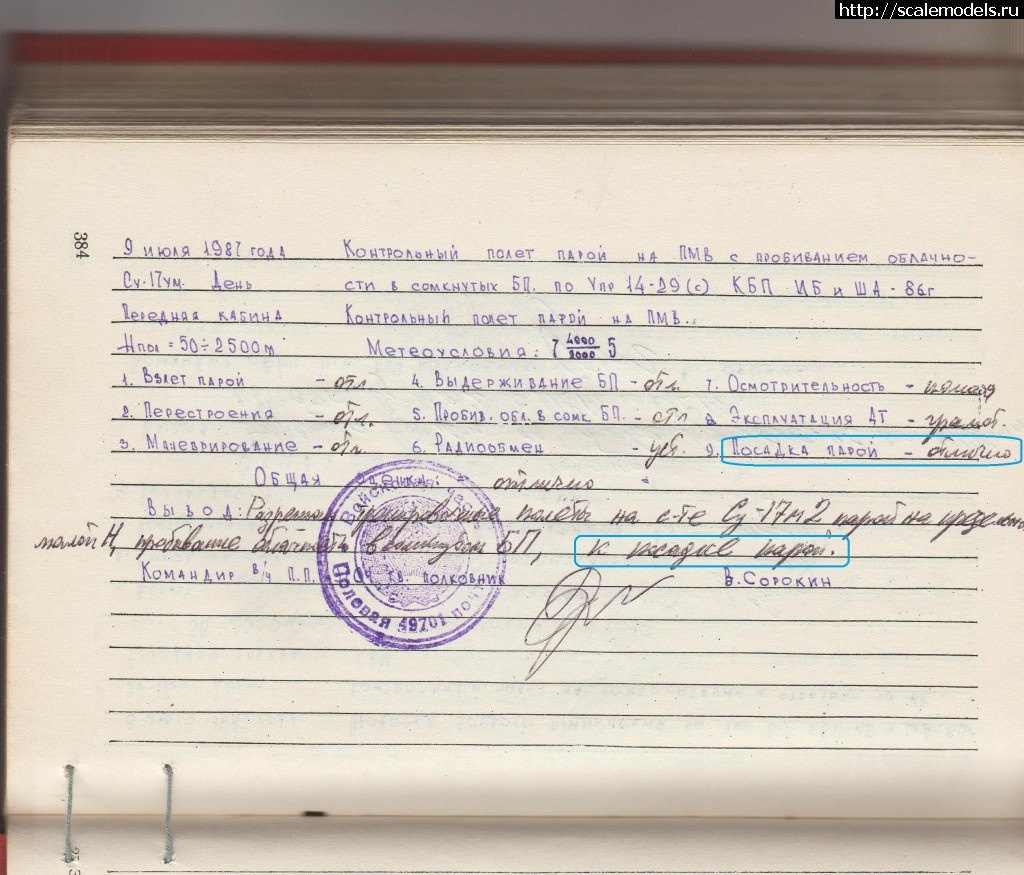 http://scalemodels.ru
384
9 июля 1987 года Контрольный полет парой на ПМВ с пробиванием облачно-
Су-17ум. День сти в сомкнутых БП. по Упр 14-29(с) КБП ИБ и ША-86г
Передняя кабина Контрольный полет парой на ПМВ.
Нпол = 50÷2500м Метеоусловия: 7 4000/2000 5
1. Взлет парой - отл 4. Выдерживание БП - отл. 7. Осмотрительность - полная
2. Перестроения - отл. 5. Пробив. обл. в сомк. БП. - отл Эксплуатация АТ - грамот.
3. Маневрирование - отл. 6. Радиообмен - уст. 9. Посадка парой - отлично.
Общая оценка: отлично
Вывод: Разрешаю тренировочные полеты на с-те Су-17м2 парой на предельно
малой Н, пробивание облачности в сомкнутом БП, к посадке парой.
Командир в/ч П.П. гв. полковник В. Сорокин
Войсковая часть
Полевая почта 49701